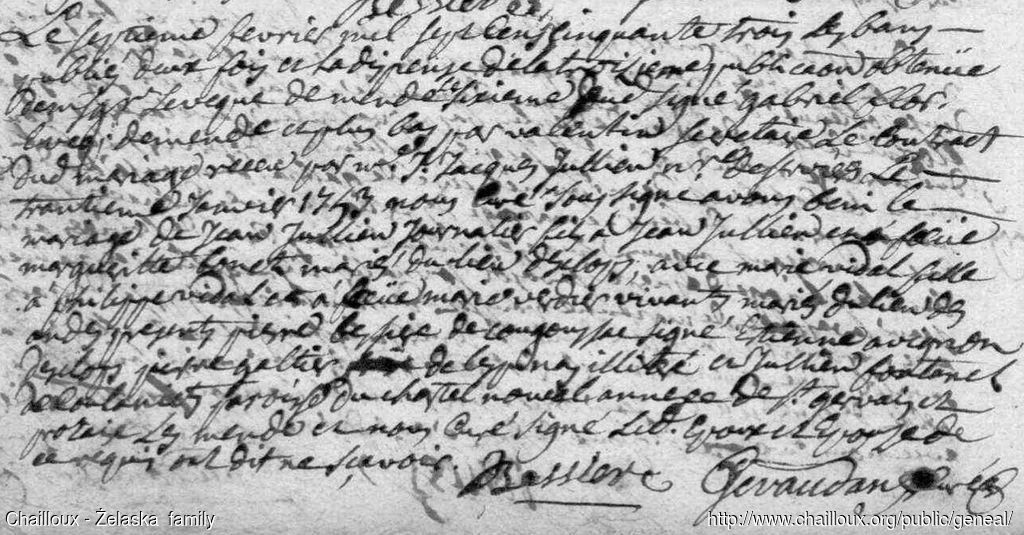 Le septieme fevrier mil sept cens cinquante trois les bans
publiés deux fois et la dispense de la troisieme publicaon obtenüe
de msgr Leveque de mende le sixieme signé gabriel flor.
eveq; de mende et plus bas par valentin secretaire le contract
dud mariage receu par me J. Jacques Jullien nre le
trantieme Janvier 1753 nous curé soussigné avons beni le
mariage de Jean Jullien Journalier fils a Jean Jullien et a feüe
margueritte mariés du lieu avec marie vidal fille
a philippe vidal et a feüe marie verdier vivants mariés du lieu des
presents pierre bessiere de cougoussac signé Etienne avignon
pierre galtier de lespinas illitére et Jullien fontanel
paroise du chastel nouvel annexe de st gervais et
les mende et nous curé signé led. Epoux et Epouse de
ce requis ont dit ne sçavoir. Bessiere Gevaudan curé
Chailloux - Želaska family
http://www.chailloux.org/public/geneal/